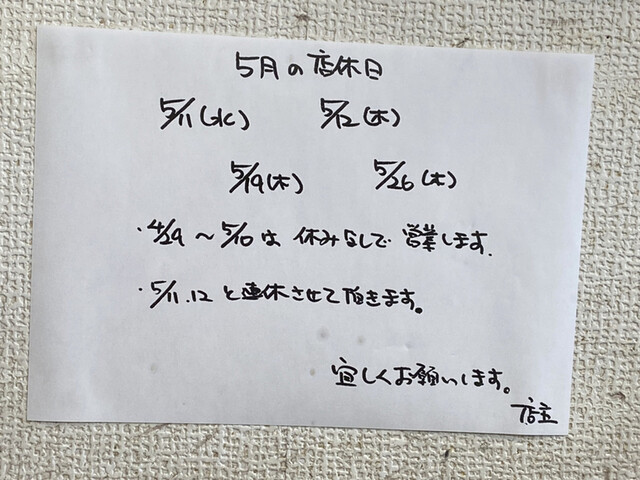 5月の店休日
5/11(水) 5/12(木)
5/19(木) 5/26(木)
・4/29～5/10は 休みなしで 営業します.
・5/11.12と連休させて頂きます。
宜しくお願いします。
店主